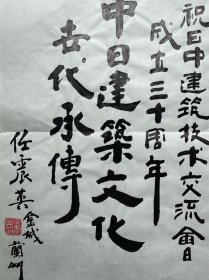 祝日中建筑技术交流会
成立三十周年
中日建築文化
世代承傳
任震英
金城
蘭州